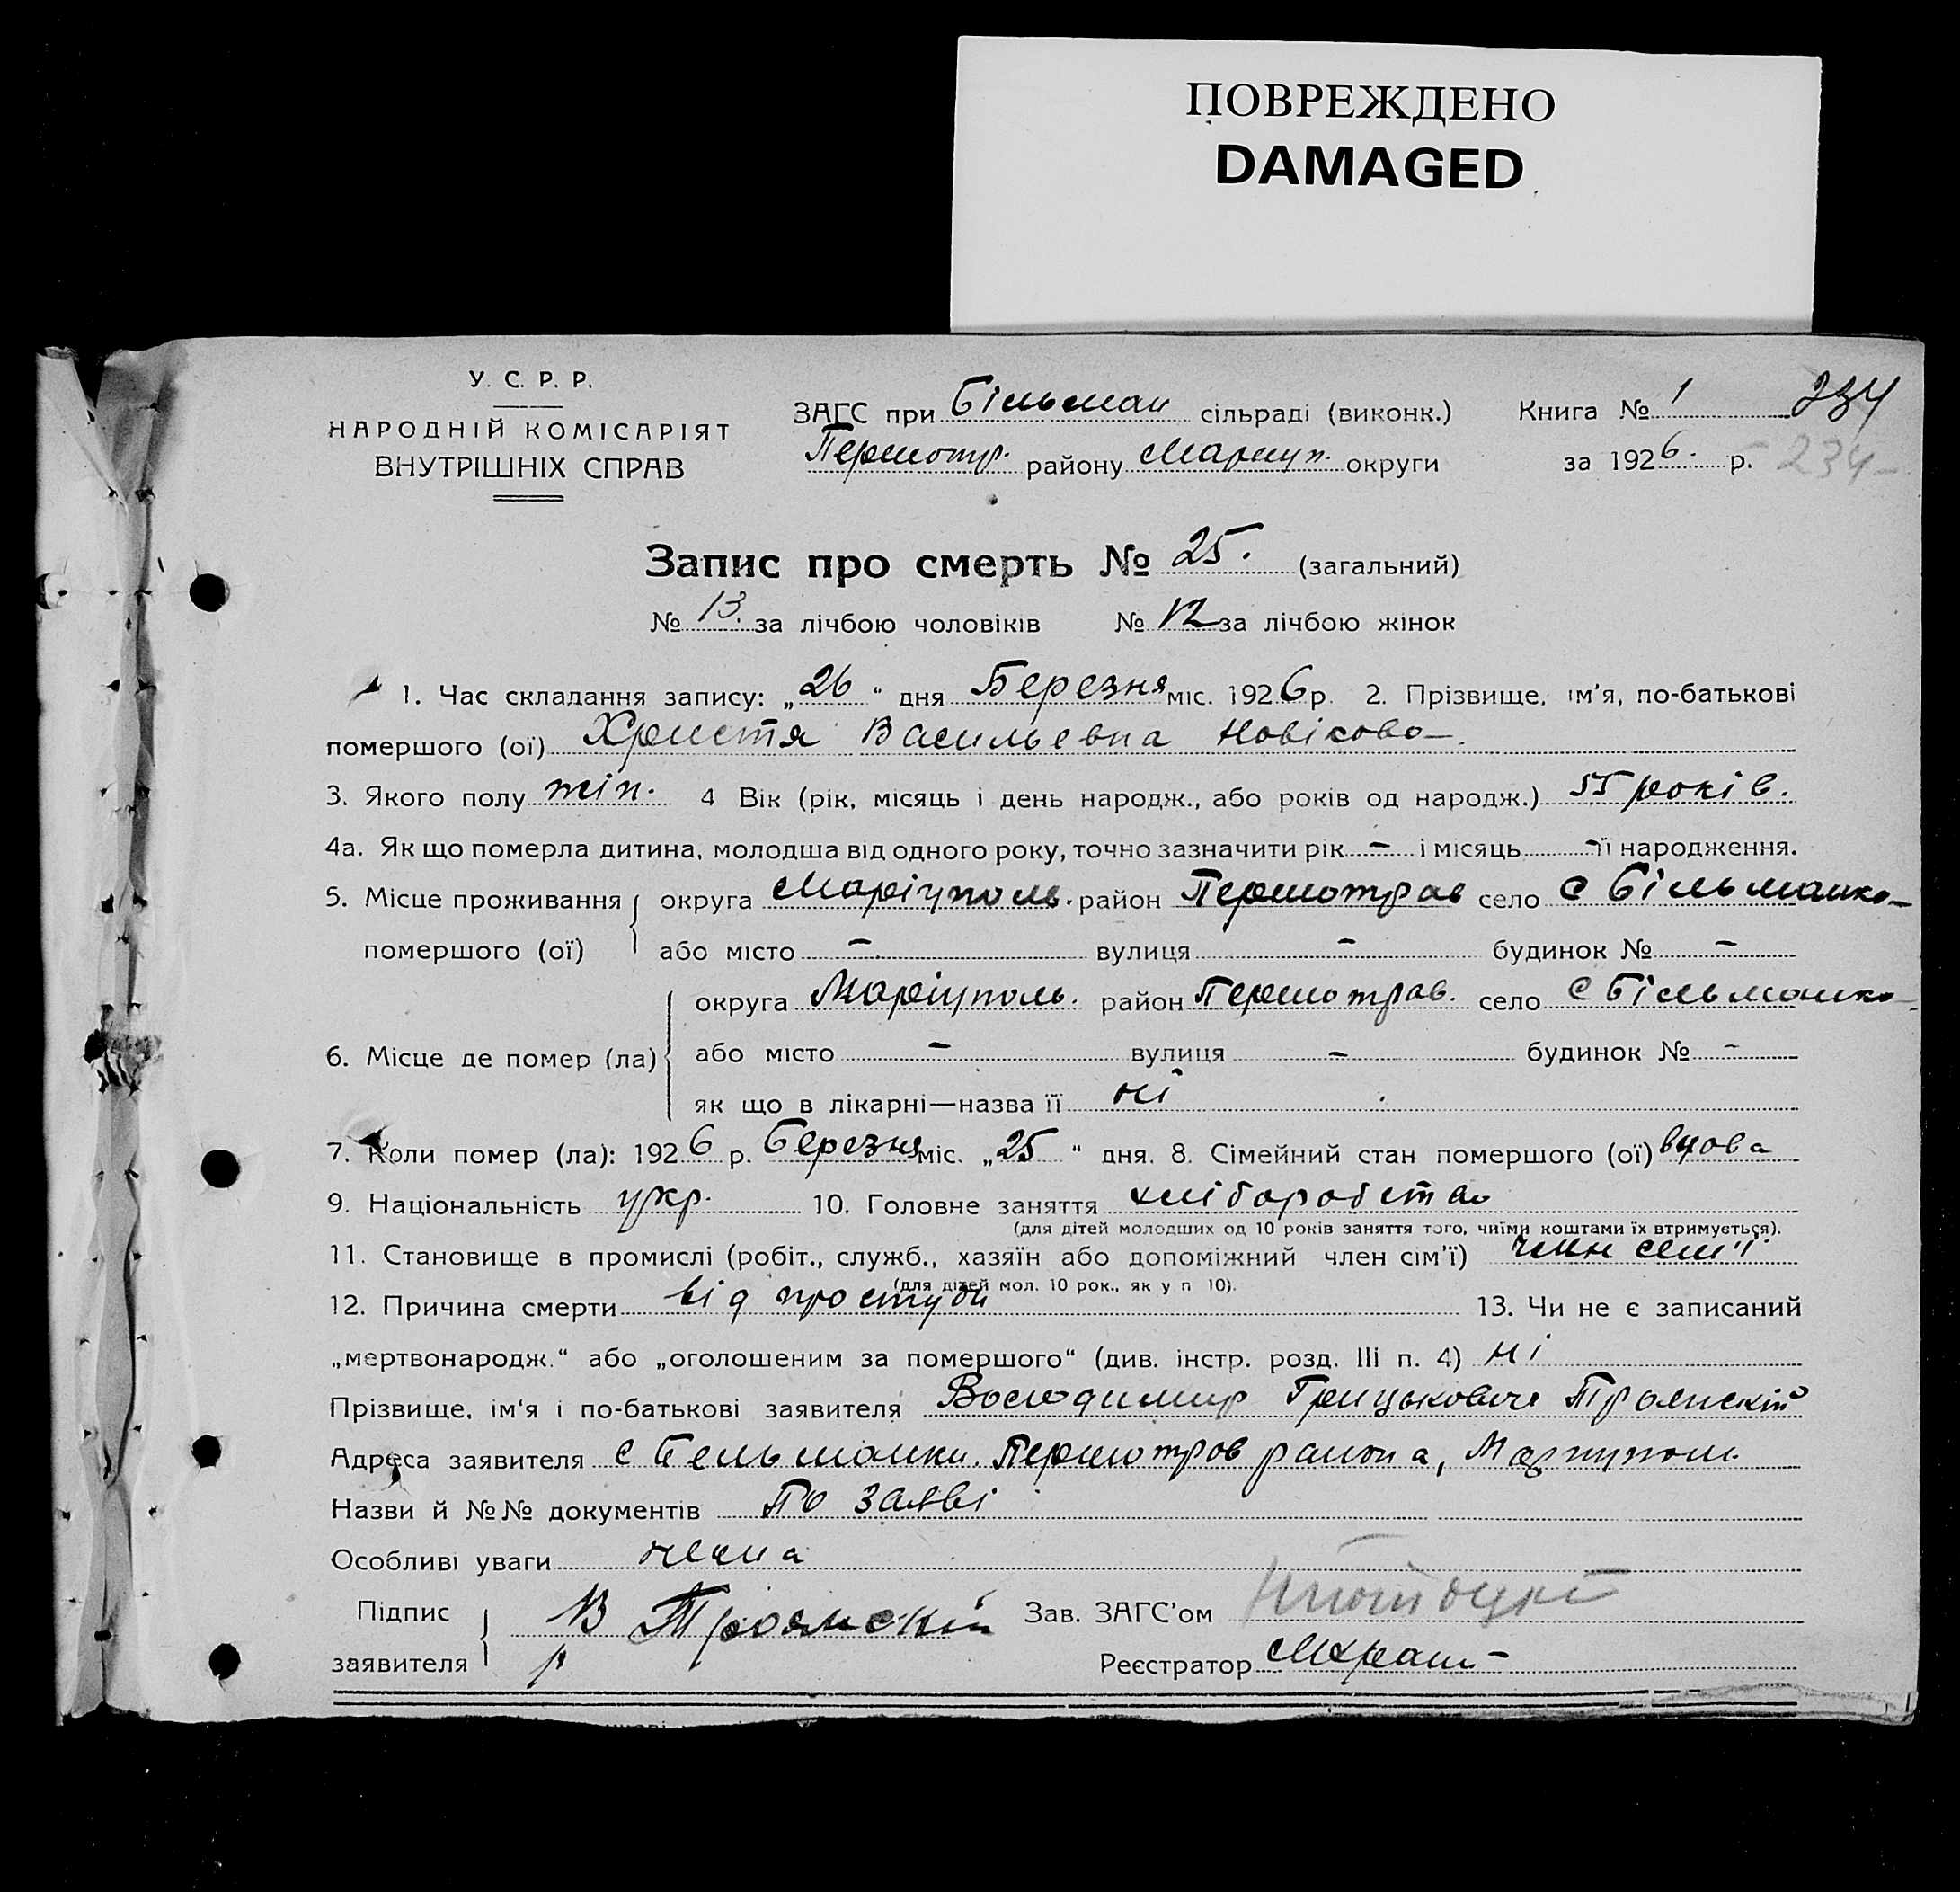 ПОВРЕЖДЕНО
DAMAGED
У. С. Р. Р.
НАРОДНІЙ КОМІСАРІЯТ
ВНУТРІШНІХ СПРАВ
ЗАГС при Більман сільраді (виконк.)
Першотр. району Маріуп. округи
Книга № 1 234
за 1926. р. 234
Запис про смерть № 25. (загальний)
№ 13. за лічбою чоловіків № 12 за лічбою жінок
1. Час складання запису: „26“ дня Березня міс. 1926 р. 2. Прізвище, ім'я, по-батькові
помершого (ої) Христя Васильевна Новікова
3. Якого полу жін. 4 Вік (рік, місяць і день народж., або років од народж.) 55 років.
4а. Як що померла дитина, молодша від одного року, точно зазначити рік – і місяць – її народження.
5. Місце проживання помершого (ої) округа Маріуполь. район Першотрав село с Більманка
або місто – вулиця – будинок № –
6. Місце де помер (ла) округа Маріуполь. район Першотрав. село с Більманка
або місто – вулиця – будинок № –
як що в лікарні—назва її ні
7. Коли помер (ла): 1926 р. Березня міс. „25“ дня. 8. Сімейний стан помершого (ої) вдова
9. Національність укр. 10. Головне заняття хліборобство
(для дітей молодших од 10 років заняття того, чиїми коштами їх втримується).
11. Становище в промислі (робіт., служб., хазяїн або допоміжний член сім'ї) член сем'ї
(для дітей мол. 10 рок., як у п 10).
12. Причина смерти від простуди 13. Чи не є записаний
„мертвонародж.“ або „оголошеним за помершого“ (див. інстр. розд. III п. 4) ні
Прізвище, ім'я і по-батькові заявителя Володимир Грицькович Троянскій
Адреса заявителя с Бельманки. Першотров района, Маріупол.
Назви й №№ документів По заяві
Особливі уваги нема
Підпис заявителя В Троянскій
Зав. ЗАГС'ом
Реєстратор